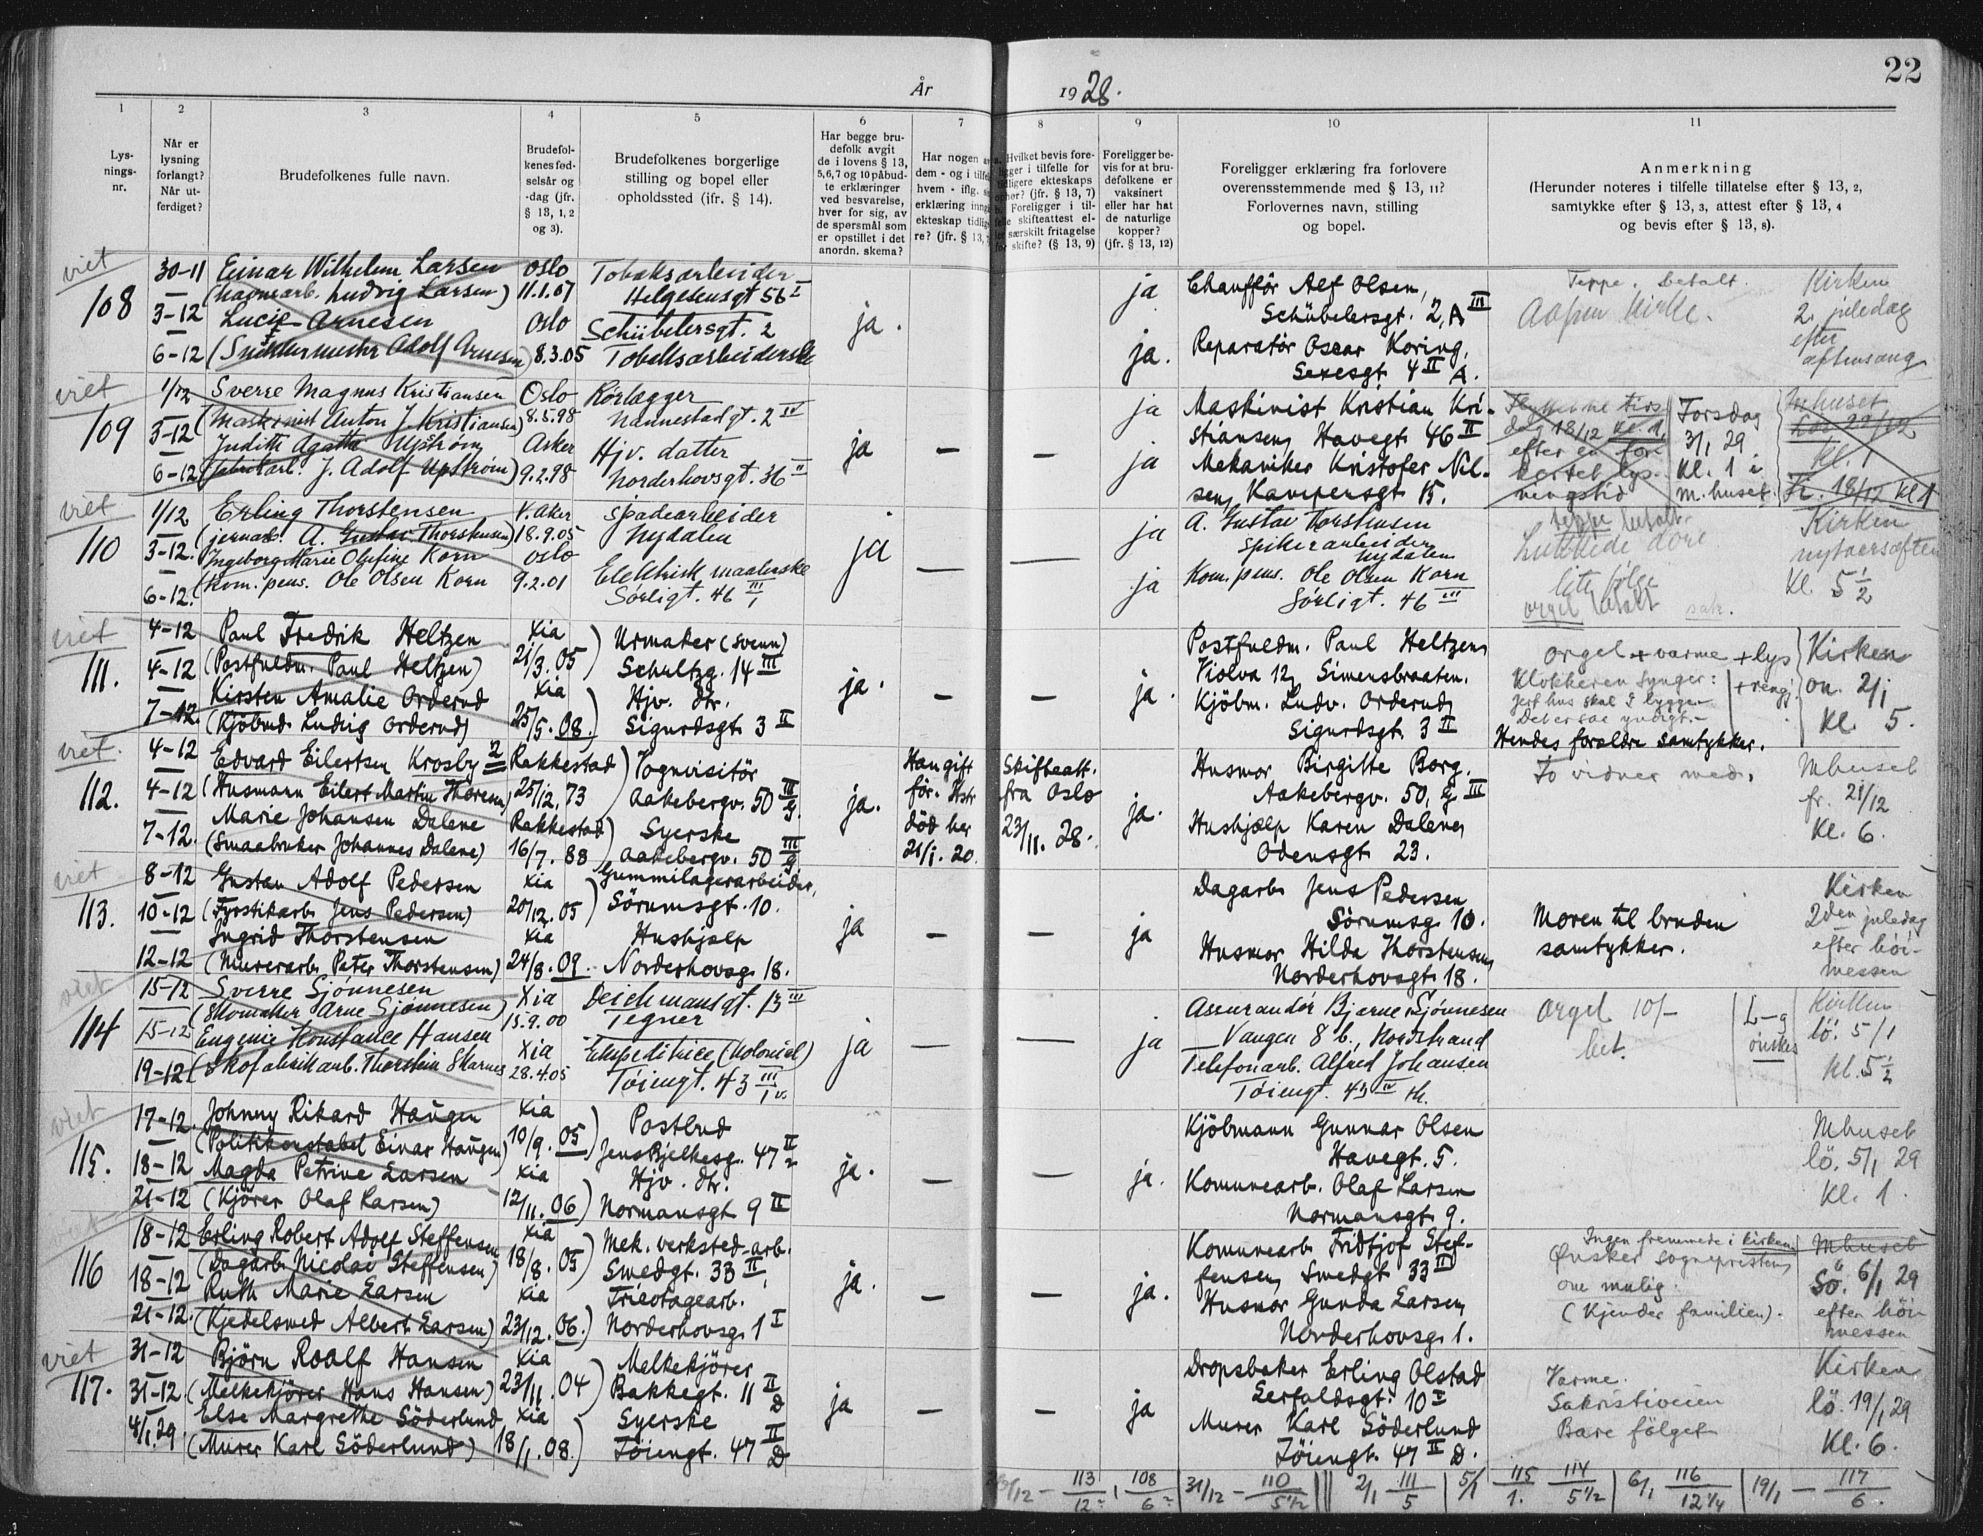 22
År 1928.
1
2
3
4
5
6
7
8
9
10
11
Lys-
nings-
nr.
Når er
lysning
forlangt?
Når ut-
ferdiget?
Brudefolkenes fulle navn.
Brudefol-
kenes fød-
selsår og
-dag (jfr.
§ 13, 1, 2
og 3).
Brudefolkenes borgerlige
stilling og bopel eller
opholdssted (ifr. § 14).
Har begge bru-
defolk avgit
de i lovens § 13,
5, 6, 7 og 10 påbud-
te erklæringer
ved besvarelse,
hver for sig, av
de spørsmål som
er opstillet i det
anordn. skema?
Har nogen
dem - og i
hvem - iflg.
erklæring
ekteskap
re? (jfr. § 13,
Hvilket bevis fore-
ligger i tilfelle for
tidligere ekteskaps
ophør? (jfr. § 13, 7)
Foreligger i til-
felle skifteattest el-
ler særskilt fritagelse
for skifte? (§ 13, 9)
Foreligger be-
vis for at bru-
defolkene er
vaksinert
eller har hat
de naturlige
kopper?
(jfr. § 13, 12)
Foreligger erklæring fra forlovere
overensstemmende med § 13, 11?
Forlovernes navn, stilling
og bopel.
Anmerkning
(Herunder noteres i tilfelle tillatelse efter § 13, 2,
samtykke efter § 13, 3, attest efter § 13, 4
og bevis efter § 13, 8).
viet
108
30-11
3-12
6-12
Einar Wilhelm Larsen
(havnearb. Ludvig Larsen)
Lucie Arnesen
Adolf Arnesen)
Oslo
11.1.07
Oslo
8.3.05
Tobaksarbeider
Helgesensgt 56 I
Schübelersgt. 2
Tobaksarbeiderske
ja.
ja
ja.
Chauffør Alf Olsen,
Schübelersgt. 2, A III
Reparatør Oscar Koring,
Sexesgt 4 II A.
Teppe. betalt.
Aapen kirke.
Kirken
2. juledag
efter
aftensang
viet
109
1/12
3-12
6-12
Sverre Magnus Kristiansen
(Maskinist Anton J. Kristiansen)
Judith Agathe Upstrøm
J. Adolf Upstrøm)
Oslo
8.5.98
Asker
9.2.98
Rørlægger
Nannestadgt. 2 IV
Hjv. datter
Norderhovsgt. 36 II
ja
—
—
ja
ja
Maskinist Kristian Kri-
stiansen, Havegt 46 II
Mekaniker Kristofer Nil-
sen, Kampensgt 15.
Tirs-
dag 18/12 kl. 1,
efter en for-
kortet lys-
ningstid
Torsdag
3/1 29
kl. 1 i
m.huset.
Mhuset
22/12
kl. 1
18/12 kl 1
viet
110
1/12
3-12.
6-12.
Erling Thorstensen
(jernarb. A. Gustav Thorstensen)
Ingeborg Marie Olufine Korn
(kom. pens. Ole Olsen Korn
V. Aker
18.9.05
Oslo
9.2.01
Spadearbeider
Nydalen
Elektrisk maalerske
Sørligt. 46 III
ja
—
—
ja
ja
A. Gustav Torstensen
Spikerarbeider
Nydalen
Kom. pens. Ole Olsen Korn
Sørligt. 46 III
teppe betalt.
Lukkede døre
lite følge
orgel betalt
sak.
Kirken
nytaarsaften
kl. 5 1/2
viet
111.
4-12
4-12
7-12.
Paul Fredrik Heltzen
(Postfuldm. Paul Heltzen)
Kirsten Amalie Orderud
(Kjöbmd. Ludvig Orderud)
Xia
21/3. 05)
Xia
25/5. 08.)
Urmaker (svenn)
Schultzg. 14 III
Hjv. dtr.
Sigurdsgt 3 II
ja.
—
—
ja.
Postfuldm. Paul Heltzen,
Violva 12, Simensbraaten.
Kjöbm. Ludv. Orderud,
Sigurdsgt 3 II
orgel + varme + lys
Klokkeren synger:
+ rengj.
Jert hus skal I bygge.
Det er saa yndigt. —
Hendes forældre samtykker.
Kirken
on. 2/1
kl. 5.
viet.
112.
4-12
4-12
7-12.
Edvard Eilertsen Krosby 2
(Husmann Eilert Martin Thoresen)
Marie Johansen Dalene
(Smaabruker Johannes Dalene)
Rakkestad
25/12. 73
Rakkestad
16/7. 88
Vognvisitör
Aakebergv. 50 III g.
Syerske
Aakebergv. 50 III g
ja.
Han gift
för. Hstr
död her
21/1. 20.
Skifteatt.
fra Oslo
23/11. 28.
ja.
Husmor Birgitte Borg.
Aakebergv. 50, g III
Hushjælp Karen Dalene,
Odensgt 23.
To vidner med.
Mhuset
fr. 21/12
kl. 6.
viet
113.
8-12
10-12
12-12
Gustav Adolf Pedersen
(Fyrstikarb. Jens Pedersen)
Ingrid Thorstensen
(Murerarb. Peter Thorstensen)
Xia
20/12. 05)
Xia
24/8. 09.
Gummilagerarbeider,
Sörumsgt. 10.
Hushjælp
Norderhovsg. 18.
ja
—
—
ja
Dagarb. Jens Pedersen
Sörumsg. 10.
Husmor Hilda Thorstensen,
Norderhovsgt 18.
Moren til bruden
samtykker.
Kirken
2den juledag
efter höi-
messen
viet
114
15-12
15-12
19-12
Sverre Sjönnesen
(Skomaker Arne Sjönnesen)
Eugenie Konstance Hansen
(Skofabrikarb. Thorstein Skarnes
Xia
15.9.00
Xia
28.4.05
Deichmansgt. 13 III
Tegner
Ekspeditrice (Kolonial)
Töiengt. 43 III
ja
—
—
ja
Assurandör Bjarne Sjönnesen
Vangen 8 b., Nordstrand
Telefonarb. Alfred Johansen
Töiengt. 43 IV th.
Orgel 10/-
bet.
önskes
Kirken
lö. 5/1
kl. 5 1/2
viet
115.
17-12.
18-12
21-12
Johnny Rikard Haugen
(Politikonstabel Einar Haugen)
Magda Petrine Larsen
(Kjörer Olaf Larsen)
Xia
10/9. 05)
Xia
12/11. 06)
Postbud
Jens Bjelkesg. 47 II
Hjv. dtr.
Normansgt 9 II
ja.
—
—
ja.
Kjöbmann Gunnar Olsen
Havegt. 5.
Komunearb. Olaf Larsen
Normansgt 9.
Mhuset
lö. 5/1 29
kl. 1.
116
18-12
18-12
21-12.
Erling Robert Adolf Steffensen
(Dagarb. Nicolai Steffensen)
Ruth Marie Larsen
(Kjedelsmed Albert Larsen)
Xia
18/8. 05)
Xia
23/12. 06.)
Mek. verksted-arb.
Smedgt. 33 II,
Tricotagearb.
Norderhovsg. 1 I
ja.
—
—
ja.
Komunearb. Fridtjof Stef-
fensen, Smedgt 33 III
Husmor Gunda Larsen,
Norderhovsg. 1.
Ingen fremmede i kirken
Ønsker sognepresten,
om mulig.
(Kjender familien).
Mhuset
Sö. 6/1 29
efter höi-
messen
viet
117.
31-12
31-12.
4/1.29
Björn Roalf Hansen
(Melkekjörer Hans Hansen)
Else Margrethe Söderlund
(Murer Karl Söderlund)
Xia
23/11. 04)
Xia
18/1. 08.)
Melkekjörer
Bakkegt. 11 II D
Syerske
Töiengt. 47 II D
ja
—
—
ja
Dropsbaker Erling Olstad
Eerfaldsgt. 10 I
Murer Karl Söderlund
Töiengt. 47 II D.
Varme.
Sakristiveien
Bare følget
Kirken
lö. 19/1 29
kl. 6.
/12 — 113/12 , 108/6 31/12 — 110/5 1/2 2/1 111/5 5/1 115/1. 114/5 1/2 6/1 116/12 1/4 19/1 — 117/6.